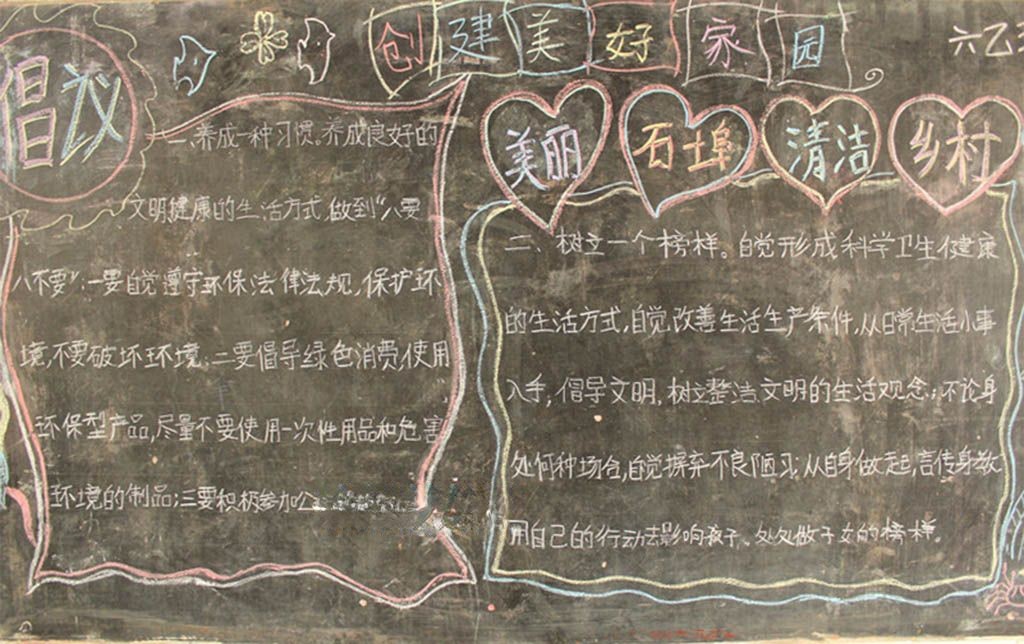 创建美好家园
六乙
倡议
一、养成一种习惯。养成良好的
文明健康的生活方式,做到“八要
八不要”:一要自觉遵守环保法律法规,保护环
境,不要破坏环境;二要倡导绿色消费,使用
环保型产品,尽量不要使用一次性用品和危害
环境的制品;三要积极参加公
美丽 石埠 清洁 乡村
二、树立一个榜样。自觉形成科学卫生健康
的生活方式,自觉改善生活生产条件,从日常生活小事
入手,倡导文明,树立整洁文明的生活观念;不论身
处何种场合,自觉摒弃不良陋习;从自身做起,言传身教
用自己的行动去影响孩子、处处做子女的榜样。